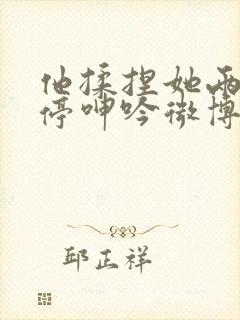 他揉捏她两
停呻吟微博
邱正祥